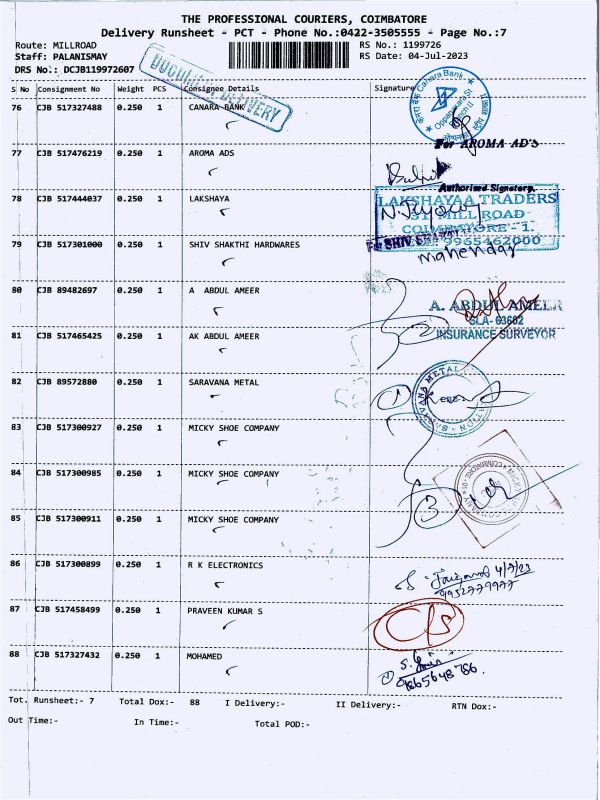 THE PROFESSIONAL COURIERS, COIMBATORE
Delivery Runsheet - PCT - Phone No.:0422-3505555 - Page No.:7
Route: MILLROAD RS No.: 1199726
Staff: PALANISMAY RS Date: 04-Jul-2023
DRS No.: DCJB119972607
DOCUMENT DELIVERY
S No Consignment No Weight PCS Consignee Details Signature
76 CJB 517327488 0.250 1 CANARA BANK
Canara Bank
For AROMA AD'S
77 CJB 517476219 0.250 1 AROMA ADS
Authorised Signatory.
78 CJB 517444037 0.250 1 LAKSHAYA
LAKSHAYAA TRADERS
MILL ROAD
COIMBATORE - 1.
9965462000
79 CJB 517301000 0.250 1 SHIV SHAKTHI HARDWARES
For SHIV
80 CJB 89482697 0.250 1 A ABDUL AMEER
A. ABDUL AMEER
SLA- 63602
INSURANCE SURVEYOR
81 CJB 517465425 0.250 1 AK ABDUL AMEER
82 CJB 89572880 0.250 1 SARAVANA METAL
83 CJB 517300927 0.250 1 MICKY SHOE COMPANY
84 CJB 517300985 0.250 1 MICKY SHOE COMPANY
85 CJB 517300911 0.250 1 MICKY SHOE COMPANY
86 CJB 517300899 0.250 1 R K ELECTRONICS
4/7/23
87 CJB 517458499 0.250 1 PRAVEEN KUMAR S
88 CJB 517327432 0.250 1 MOHAMED
9865648786.
Tot. Runsheet:- 7 Total Dox:- 88 I Delivery:- II Delivery:- RTN Dox:-
Out Time:- In Time:- Total POD:-